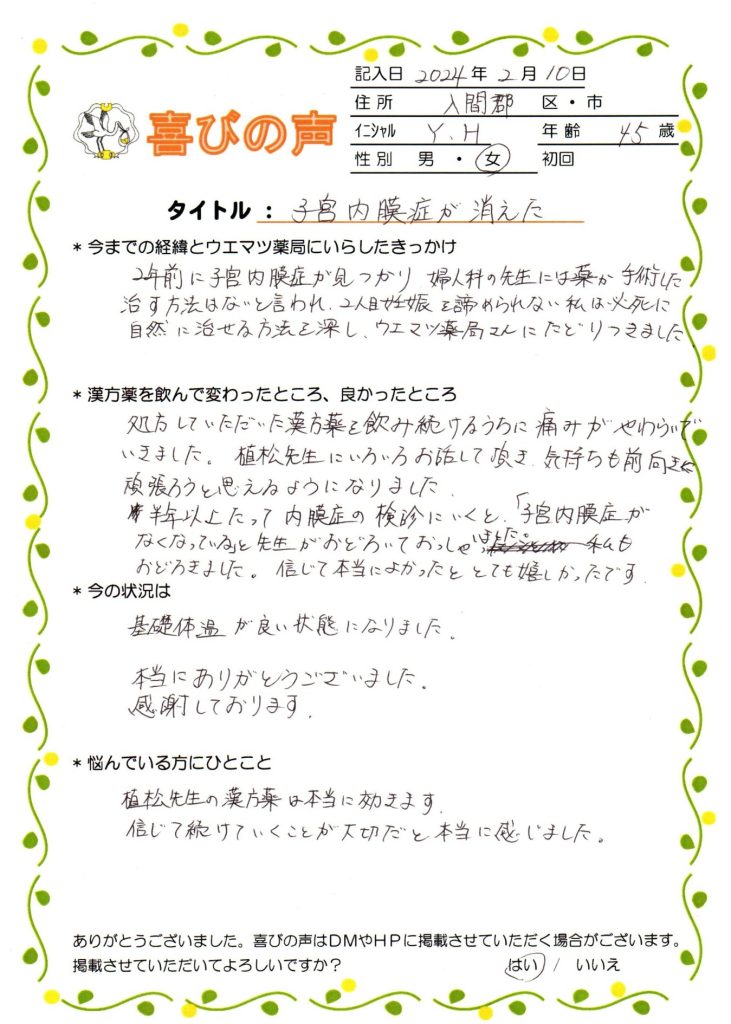 記入日 2024年 2月 10日
住所 入間郡 区・市
喜びの声
イニシャル Y.H 年齢 45歳
性別 男・女 初回
タイトル： 子宮内膜症が消えた
* 今までの経緯とウエマツ薬局にいらしたきっかけ
2年前に子宮内膜症が見つかり 婦人科の先生には薬か手術した
治す方法はないと言われ、2人目妊娠を諦められない私は必死に
自然に治せる方法を探し、ウエマツ薬局さんにたどりつきました
* 漢方薬を飲んで変わったところ、良かったところ
処方していただいた漢方薬を飲み続けるうちに痛みがやわらいで
いきました。植松先生にいろいろお話して頂き、気持ちも前向きに
頑張ろうと思えるようになりました
半年以上たって内膜症の検診にいくと、「子宮内膜症が
なくなっている」と先生がおどろいておっしゃいました。私も
おどろきました。信じて本当によかったととても嬉しかったです
* 今の状況は
基礎体温が良い状態になりました。
本当にありがとうございました。
感謝しております。
* 悩んでいる方にひとこと
植松先生の漢方薬は本当に効きます
信じて続けていくことが大切だと本当に感じました。
ありがとうございました。喜びの声はDMやHPに掲載させていただく場合がございます。
掲載させていただいてよろしいですか？ はい / いいえ